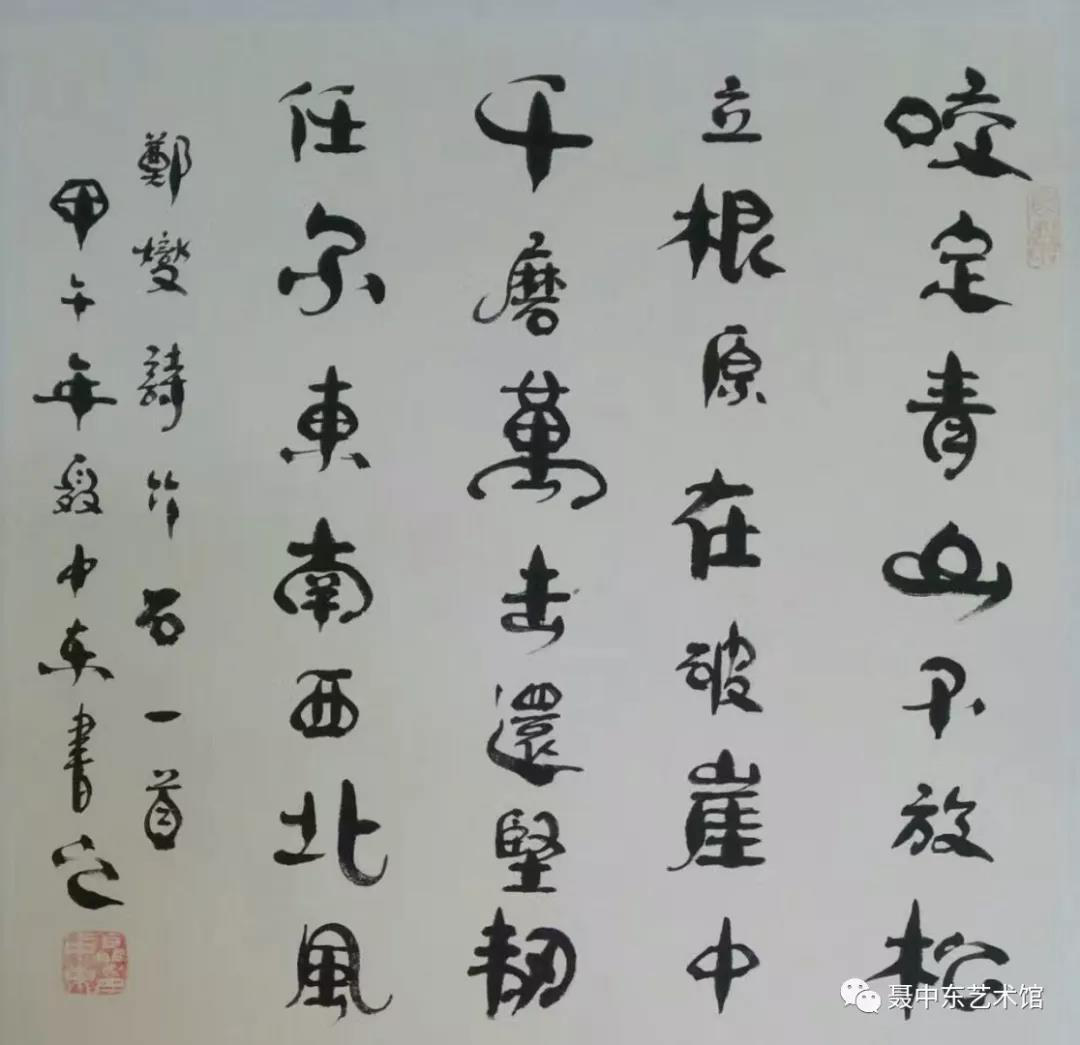 咬定青山不放松
立根原在破崖中
千磨萬击還堅韧
任尔東南西北風
鄭燮詩竹石一首
甲午年聂中东書之
聂中东艺术馆